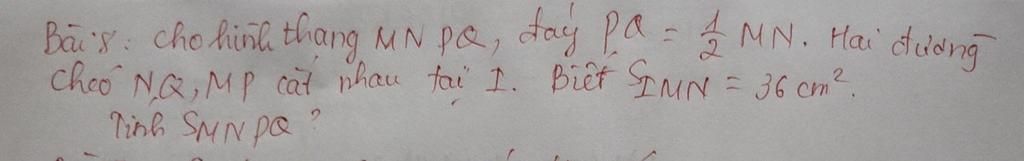 Bài 8: cho hình thang MNPQ, đáy PQ = 1/2 MN. Hai đường
chéo NQ, MP cắt nhau tại I. Biết S_IMN = 36 cm².
Tính S_MNPQ?